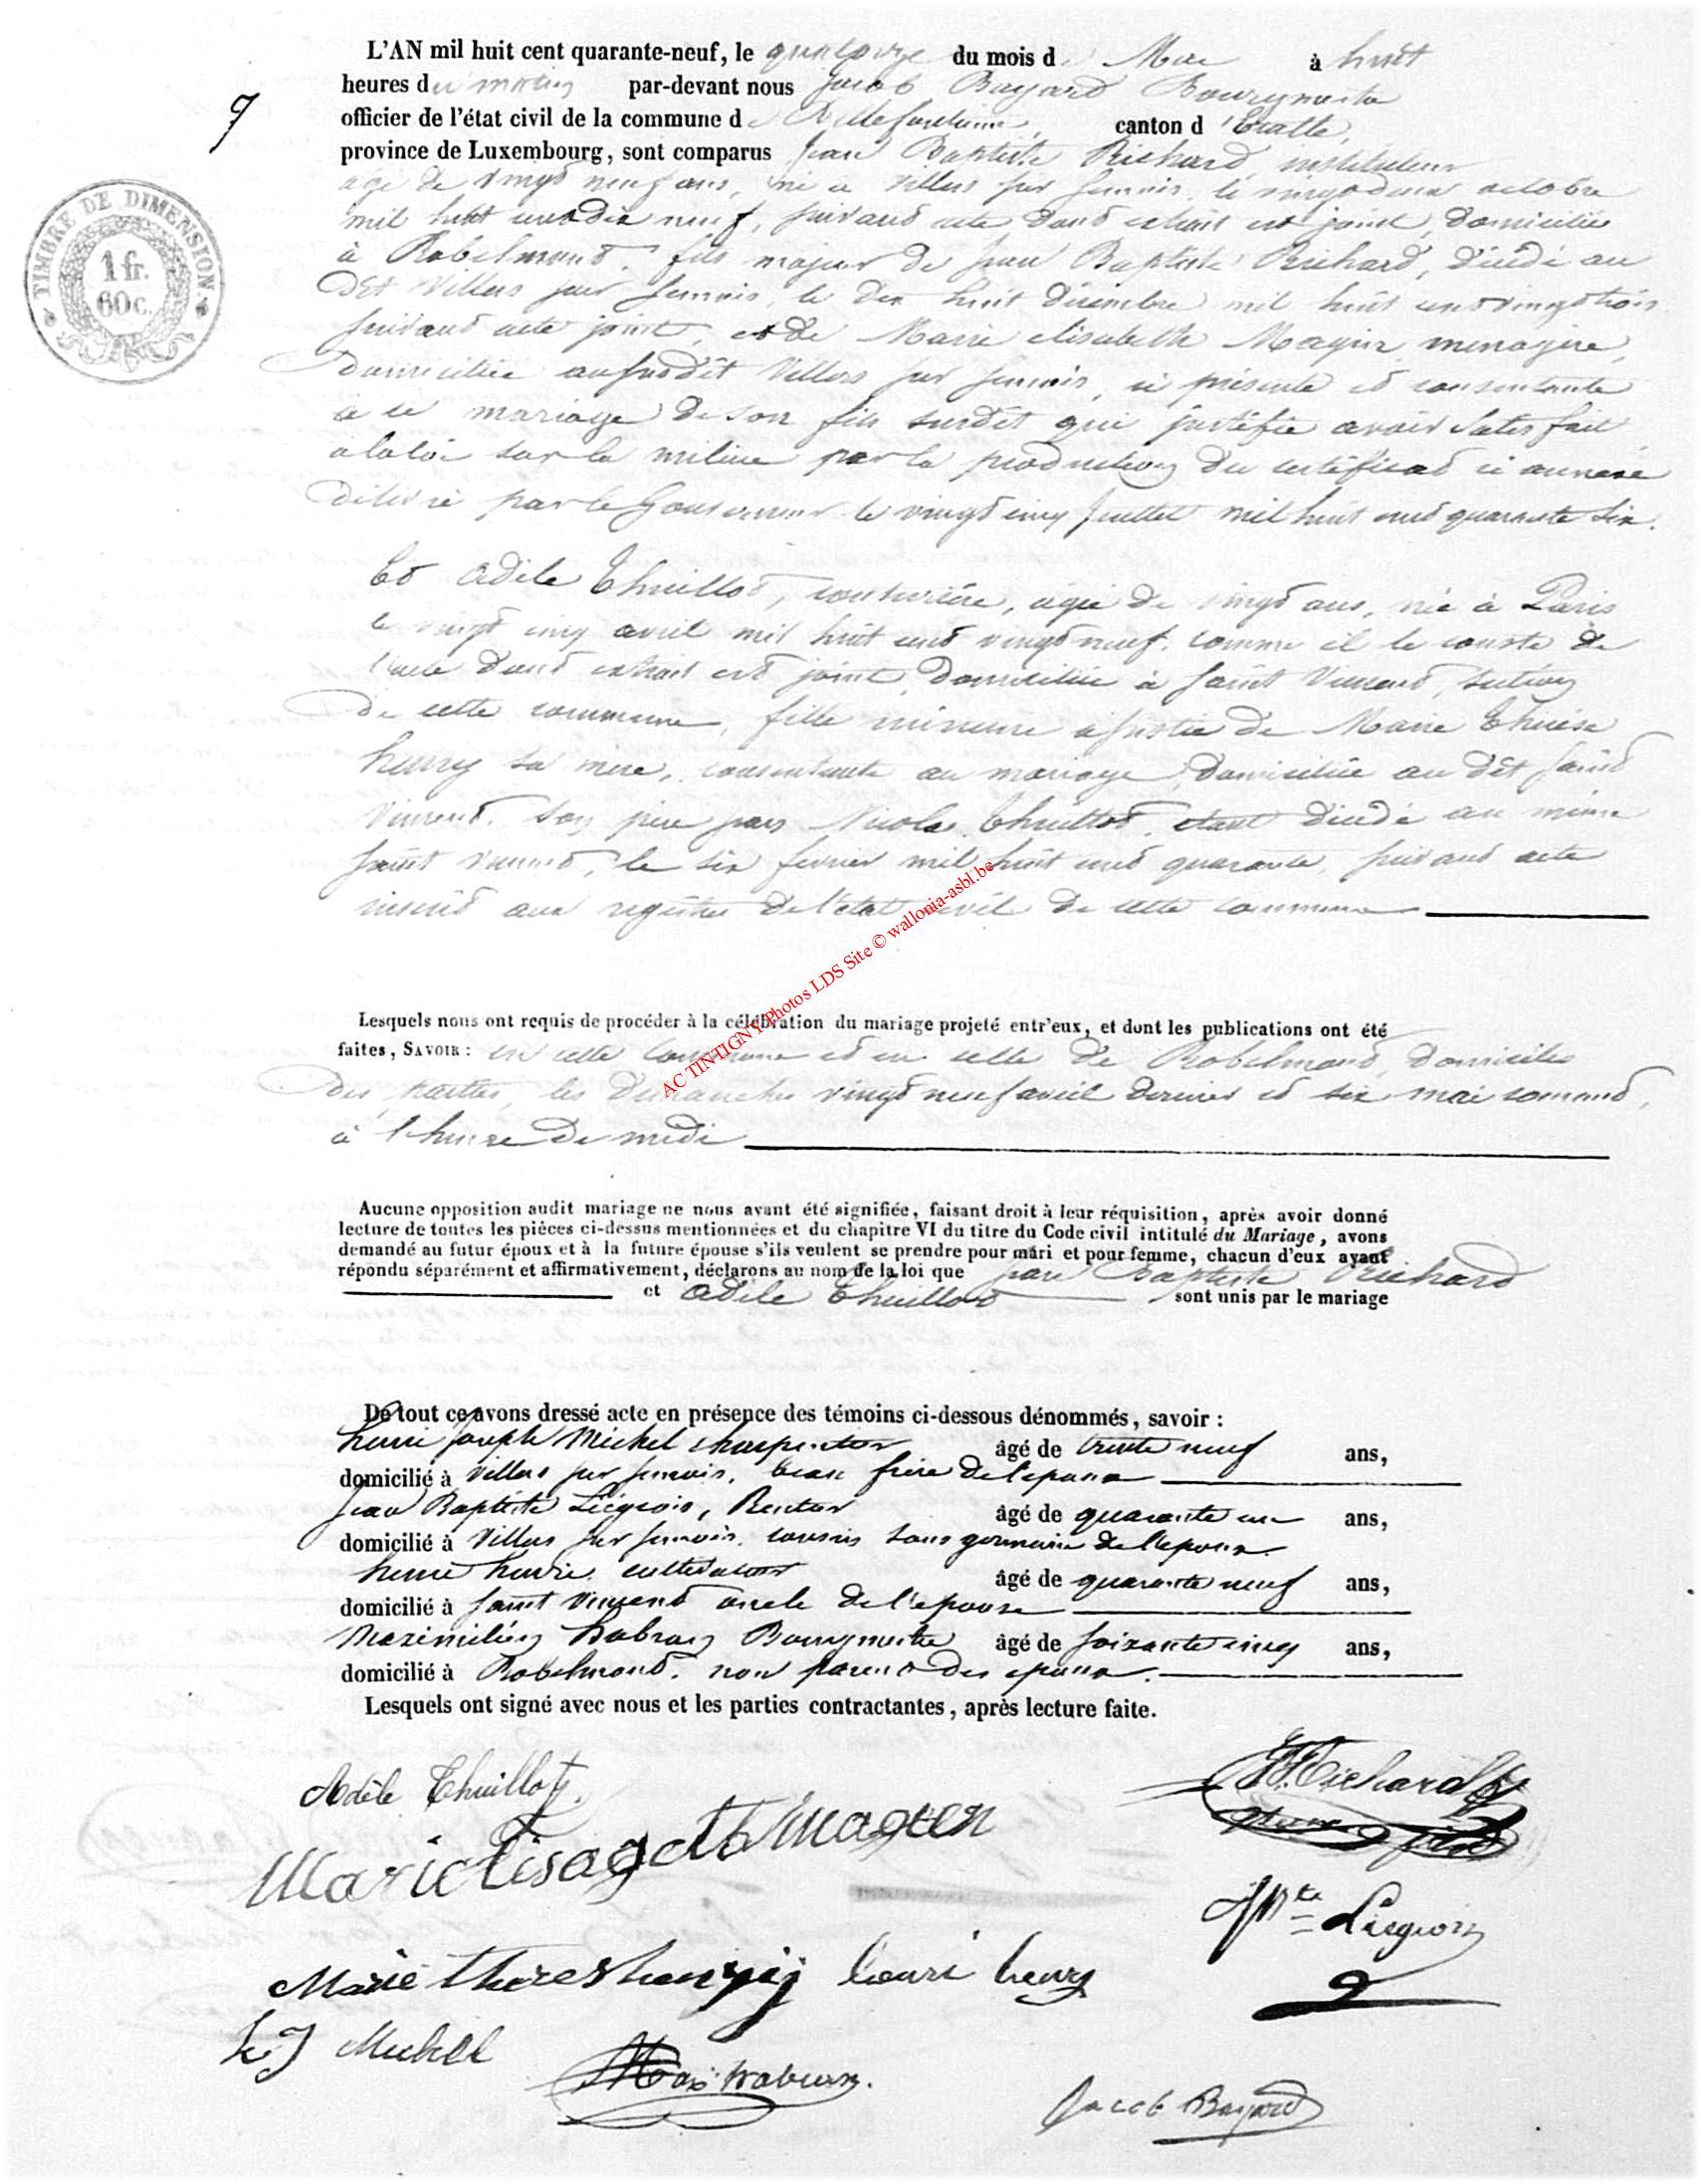 L'AN mil huit cent quarante-neuf, le quatorze du mois de Mai à huit
heures du matin par-devant nous Jacob Bayard Bourgmestre
officier de l'état civil de la commune de Bellefontaine, canton d'Etalle,
province de Luxembourg, sont comparus Jean Baptiste Richard, instituteur
9
TIMBRE DE DIMENSION
1 fr.
60 c.
agé de vingt neuf ans, né a Villers sur Semois, le vingt deux octobre
mil huit cent dix neuf, suivant acte dont extrait est joint, domicilié
à Robelmont, fils majeur de Jean Baptiste Richard, décédé au
dit Villers sur Semois, le dix huit décembre mil huit cent vingt trois
suivant acte joint, et de Marie elisabeth Magin, menagère,
domiciliée au susdit Villers sur Semois, ci présente et consentante
à ce mariage de son fils susdit qui justifie avoir satisfait
a la loi sur la milice par la production du certificat ci annexé
délivré par le Gouverneur le vingt cinq Juillet mil huit cent quarante six.
Et Adèle Thuillot, couturière, agée de vingt ans, née à Paris
le vingt cinq avril mil huit cent vingt neuf, comme il le conste de
l'acte dont extrait est joint, domiciliée à Saint Vincent, section
de cette commune, fille mineure assistée de Marie Thérèse
henry sa mère, consentante au mariage, domiciliée au dit Saint
Vincent, son père Nicolas Thuillot, étant décédé au même
Saint Vincent, le six fevrier mil huit cent quarante, suivant acte
inscrit aux registres de l'état civil de cette commune
AC TINTIGNY Photos LDS Site © wallonia-asbl.be
Lesquels nous ont requis de procéder à la célébration du mariage projeté entr'eux, et dont les publications ont été
faites, SAVOIR : en cette commune et en celle de Robelmont domiciles
des parties, les Dimanches vingt neuf avril dernier et six mai courant,
à l'heure de midi
Aucune opposition audit mariage ne nous ayant été signifiée, faisant droit à leur réquisition, après avoir donné
lecture de toutes les pièces ci-dessus mentionnées et du chapitre VI du titre du Code civil intitulé du Mariage, avons
demandé au futur époux et à la future épouse s'ils veulent se prendre pour mari et pour femme, chacun d'eux ayant
répondu séparément et affirmativement, déclarons au nom de la loi que Jean Baptiste Richard
et Adèle Thuillot sont unis par le mariage
De tout ce avons dressé acte en présence des témoins ci-dessous dénommés, savoir :
henri Joseph Michel charpentier âgé de trente neuf ans,
domicilié à Villers sur Semois, beau frère de l'epoux
Jean Baptiste Liégeois, Rentier âgé de quarante un ans,
domicilié à Villers sur Semois, cousin sous germain de l'epoux
henri henri, cultivateur âgé de quarante neuf ans,
domicilié à Saint Vincent oncle de l'epouse
Maximilien habran Bourgmestre âgé de soixante cinq ans,
domicilié à Robelmont, non parent des epoux.
Lesquels ont signé avec nous et les parties contractantes, après lecture faite.
Adèle Thuillot.
Richard
Marie Lisabeth magien
JBte Liégeois
Marie thereshenry henri henry
h J Michel
Max habran.
Jacob Bayard